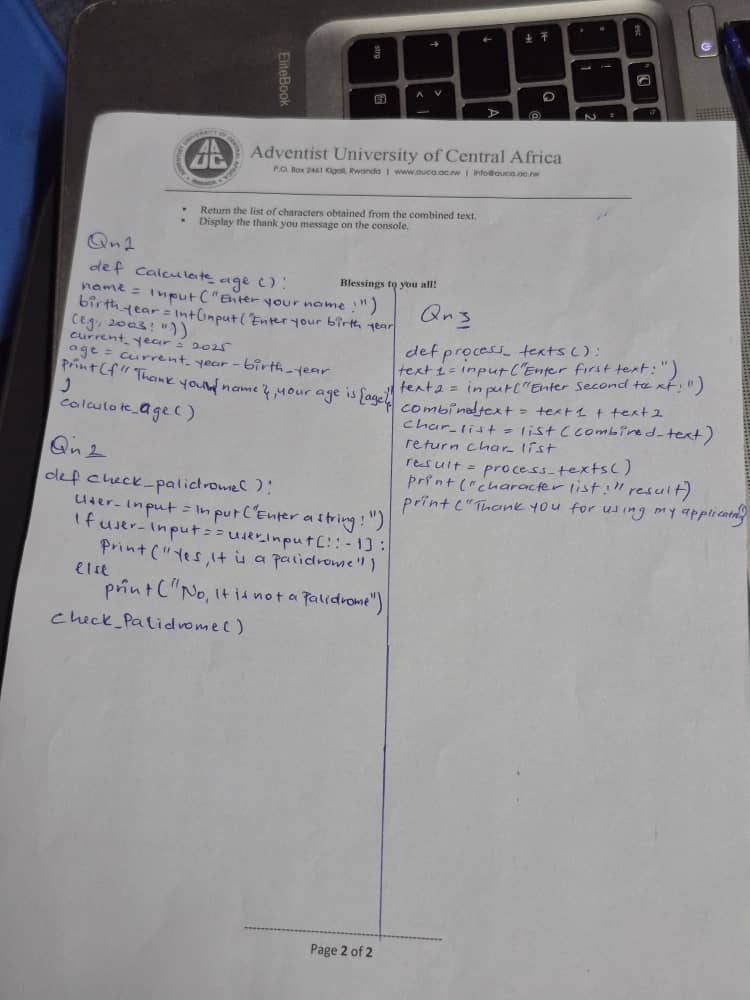 Adventist University of Central Africa
P.O. Box 2461 Kigali, Rwanda | www.auca.ac.rw | info@auca.ac.rw
• Return the list of characters obtained from the combined text.
• Display the thank you message on the console.
Blessings to you all!
Qn1
def calculate_age():
name = input("Enter your name:")
birth_year = Int(input("Enter your birth year
(eg; 2003:"))
current_year = 2025
age = current_year - birth_year
print(f"Thank you {name}, your age is {age}"
)
calculate_age()
Qn2
def check_palidrome():
user_input = input("Enter a string:")
If user_input == user_input[::-1]:
print("Yes, It is a Palidrome")
else
print("No, It is not a Palidrome")
check_Palidrome()
Qn3
def process_texts():
text1 = input("Enter first text:")
text2 = input("Enter Second text:")
combinedtext = text1 + text2
char_list = list(combined_text)
return char_list
result = process_texts()
print("character list:" result)
print("Thank you for using my application")
Page 2 of 2
EliteBook